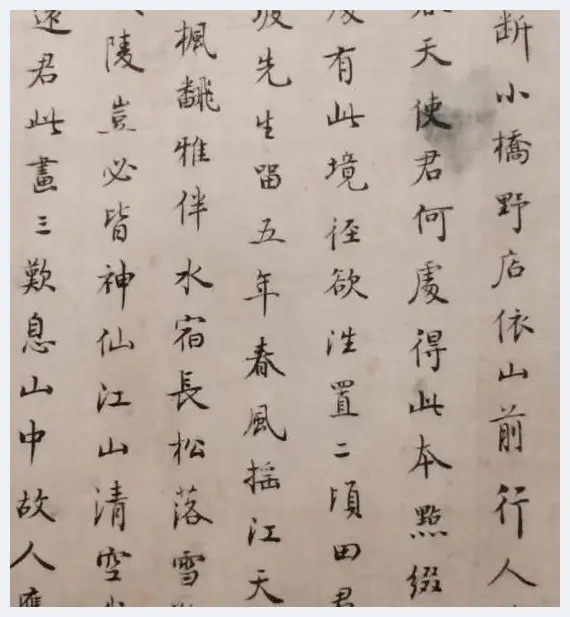 断小橋野店依山前行人
天使君何處得此本點綴
有此境徑欲往置二頃田君
坡先生留五年春風搖江天
楓飜雅伴水宿長松落雪
陵豈必皆神仙江山清空
還君此畫三歎息山中故人應